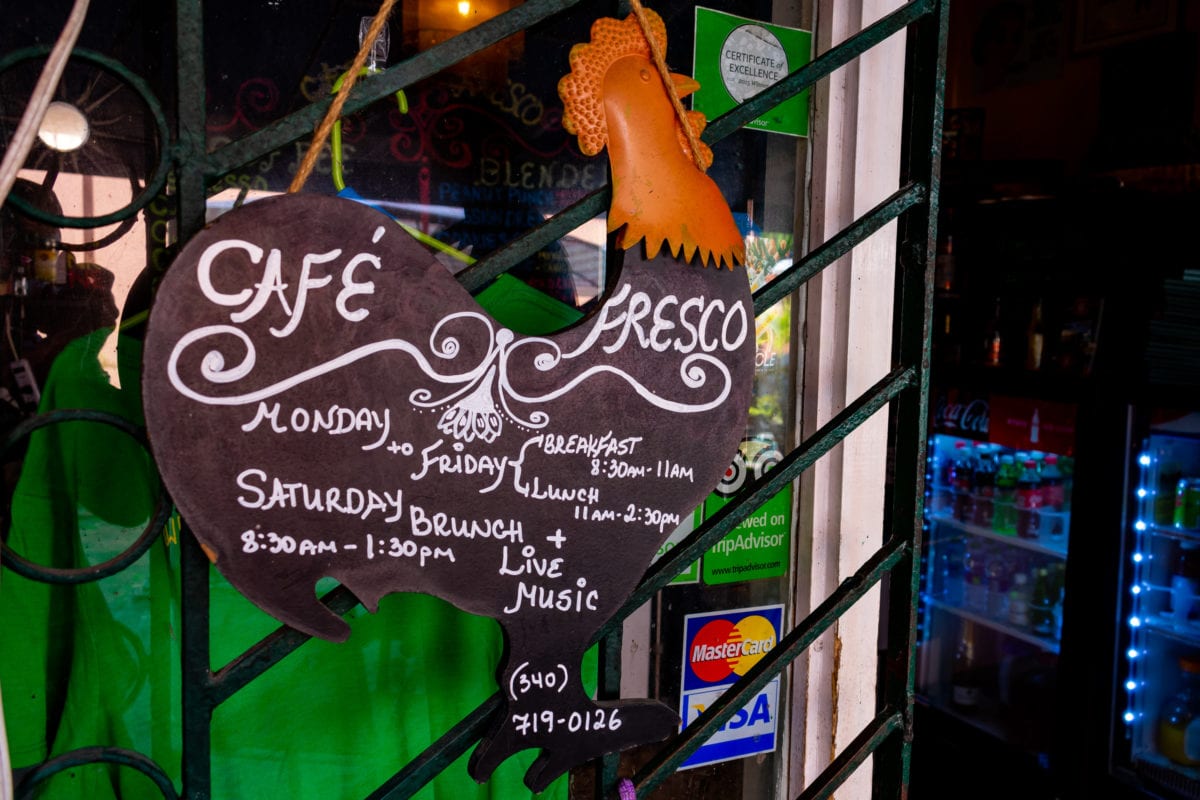 CAFÉ FRESCO
MONDAY to FRIDAY
BREAKFAST
8:30AM-11AM
LUNCH
11AM-2:30PM
SATURDAY BRUNCH + LIVE MUSIC
8:30AM-1:30PM
(340)
719-0126
CERTIFICATE of
EXCELLENCE
2015 Winner
visor
FRESCO
BLENDE
wed on
TripAdvisor
www.tripadvisor.com
MasterCard
VISA
Coca-Cola